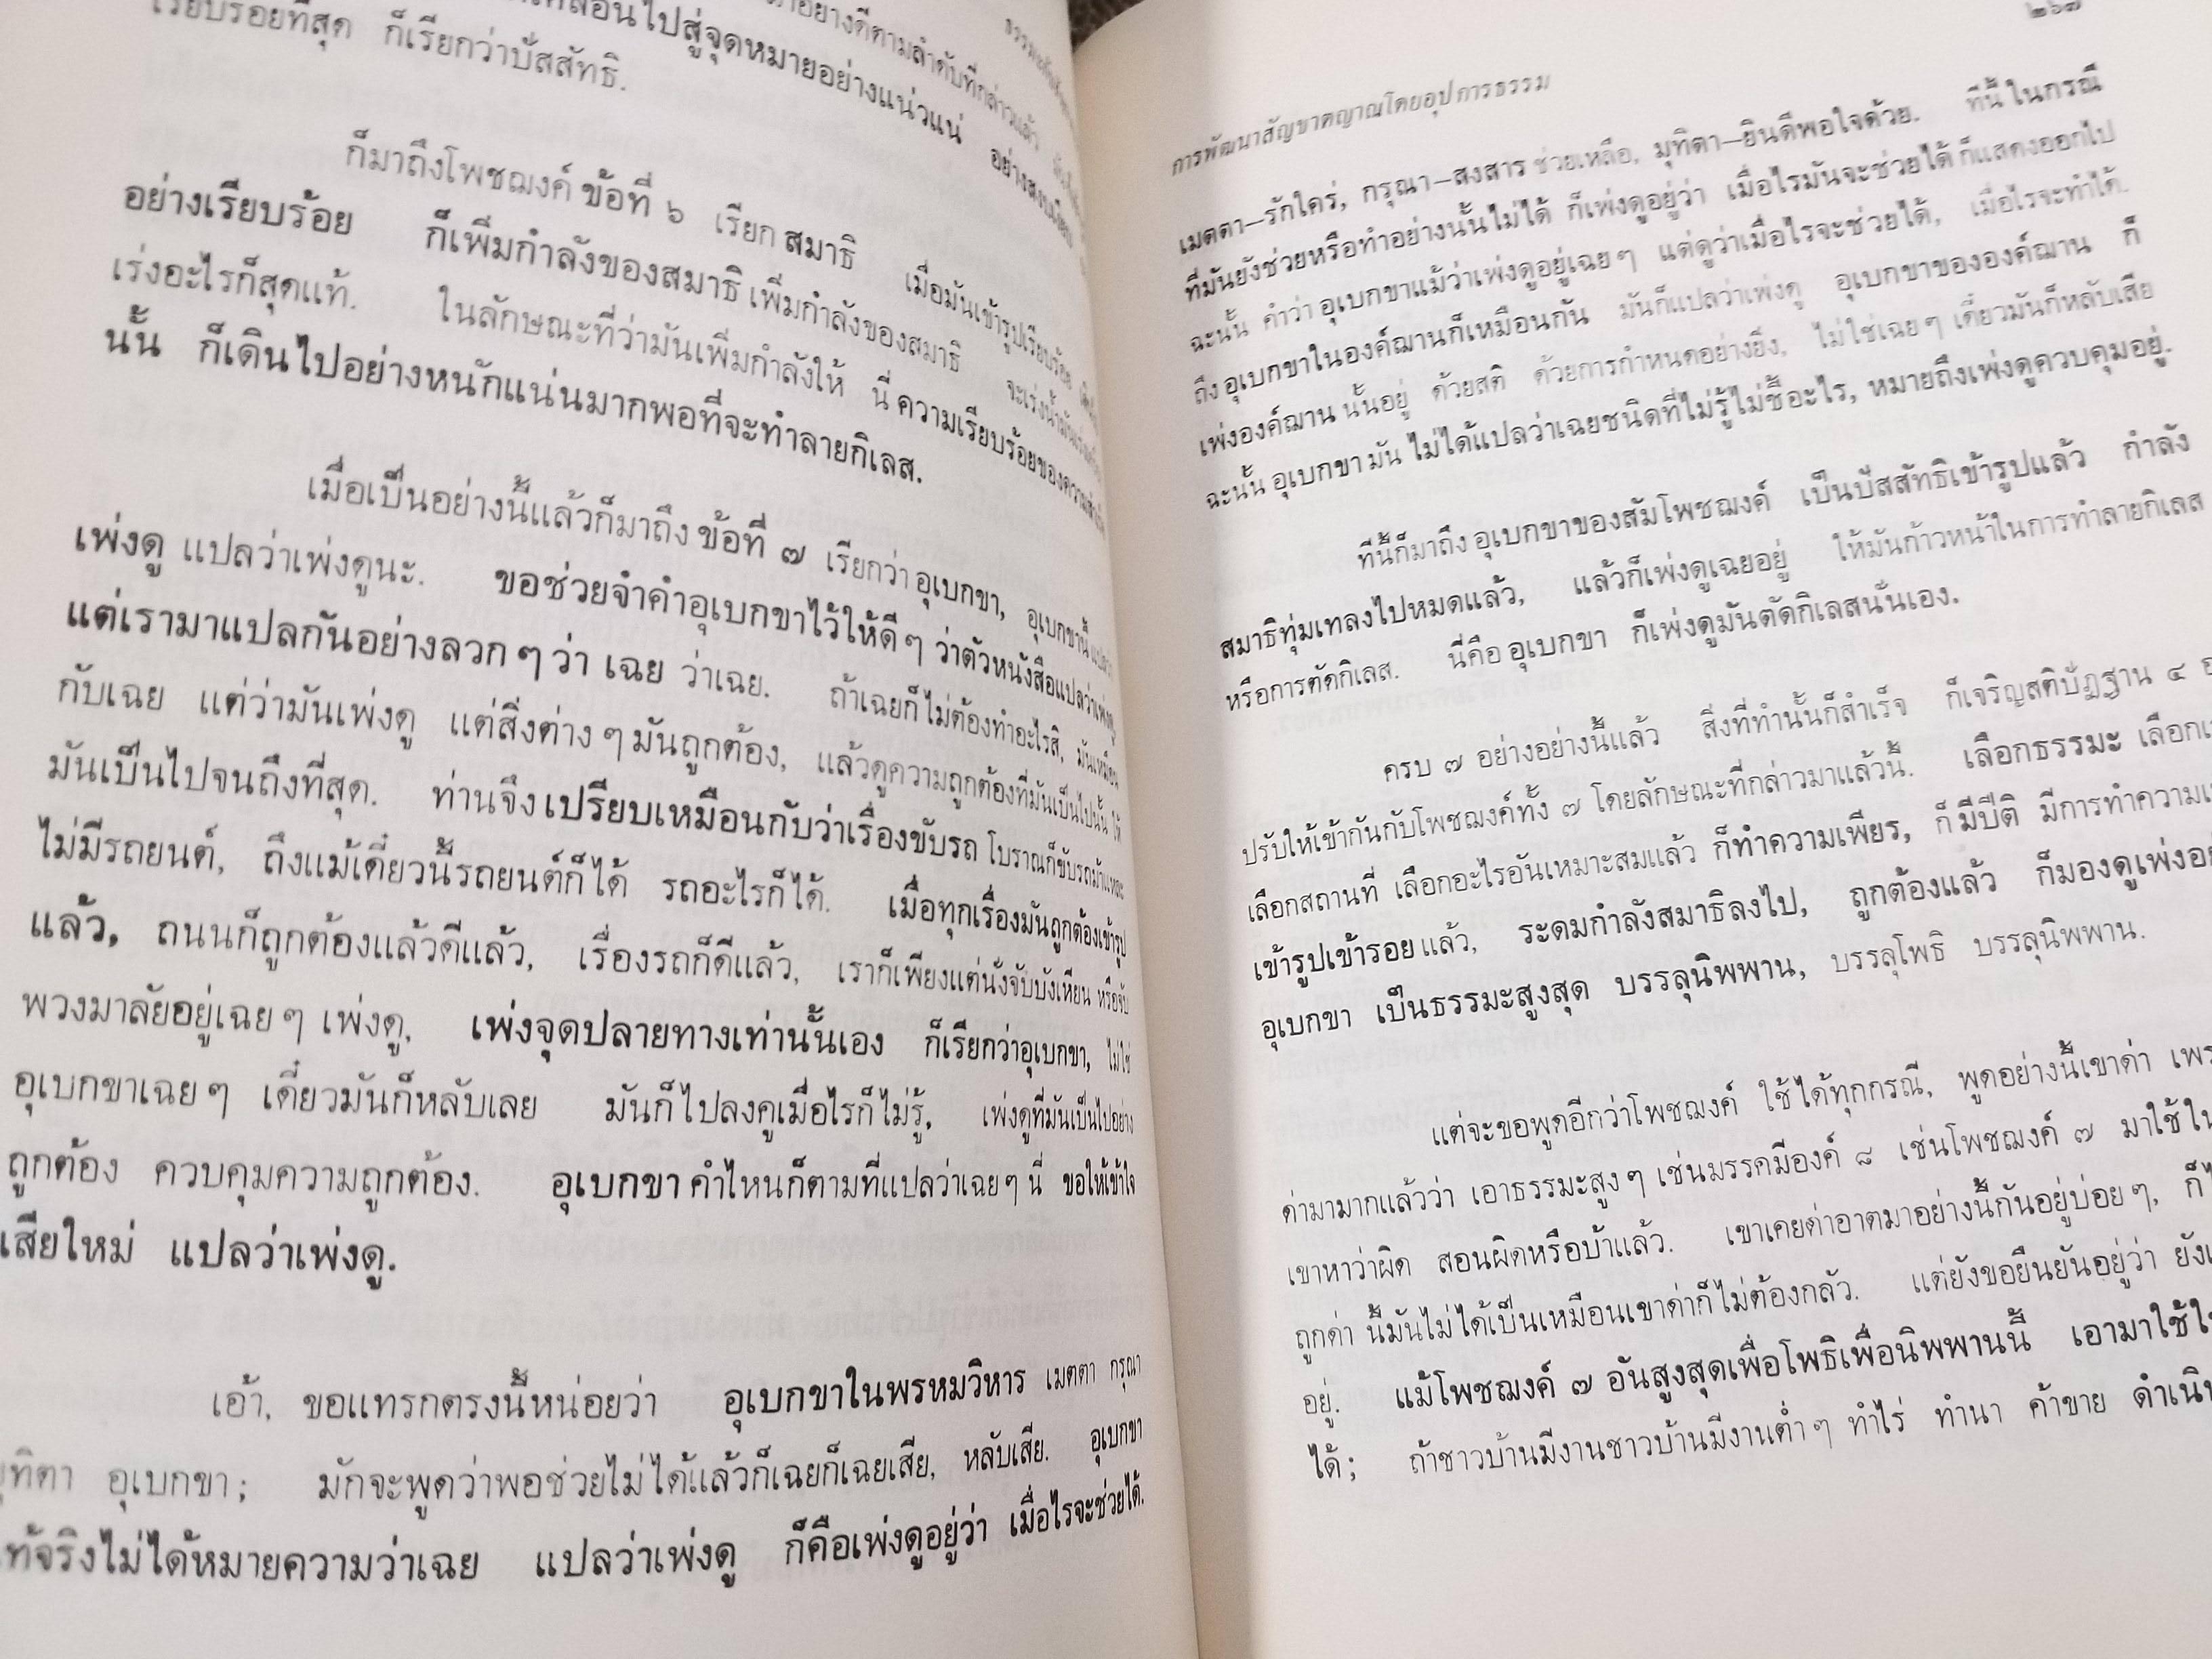 อย่างดีตามลำดับที่กล่าวแล้ว
ไปสู่จุดหมายอย่างแน่วแน่ อย่างสงบ
เรียบร้อยที่สุด ก็เรียกว่าปัสสัทธิ.
ก็มาถึงโพชฌงค์ ข้อที่ ๖ เรียก สมาธิ เมื่อมันเข้ารูปเรียบร้อย
อย่างเรียบร้อย ก็เพิ่มกำลังของสมาธิ เพิ่มกำลังของสมาธิ จะเร่งน้ำมัน
เร่งอะไรก็สุดแท้. ในลักษณะที่ว่ามันเพิ่มกำลังให้ นี่ ความเรียบร้อยของความ
นั้น ก็เดินไปอย่างหนักแน่นมากพอที่จะทำลายกิเลส.
เมื่อเป็นอย่างนี้แล้วก็มาถึง ข้อที่ ๗ เรียกว่า อุเบกขา, อุเบกขานี้ แปลว่า
เพ่งดู แปลว่าเพ่งดูนะ. ขอช่วยจำคำอุเบกขาไว้ให้ดี ๆ ว่าตัวหนังสือแปลว่าเพ่งดู
แต่เรามาแปลกันอย่างลวก ๆ ว่า เฉย ว่าเฉย. ถ้าเฉยก็ไม่ต้องทำอะไรสิ, มันเหมือน
กับเฉย แต่ว่ามันเพ่งดู แต่สิ่งต่าง ๆ มันถูกต้อง, แล้วดูความถูกต้องที่มันเป็นไปนั้น ให้
มันเป็นไปจนถึงที่สุด. ท่านจึง เปรียบเหมือนกับว่าเรื่องขับรถ โบราณก็ขับรถม้าแหละ
ไม่มีรถยนต์, ถึงแม้เดี๋ยวนี้รถยนต์ก็ได้ รถอะไรก็ได้. เมื่อทุกเรื่องมันถูกต้องเข้ารูป
แล้ว, ถนนก็ถูกต้องแล้วดีแล้ว, เรื่องรถก็ดีแล้ว, เราก็เพียงแต่นั่งจับบังเหียน หรือจับ
พวงมาลัยอยู่เฉย ๆ เพ่งดู, เพ่งจุดปลายทางเท่านั้นเอง ก็เรียกว่าอุเบกขา, ไม่ใช่
อุเบกขาเฉย ๆ เดี๋ยวมันก็หลับเลย มันก็ไปลงคูเมื่อไรก็ไม่รู้, เพ่งดูที่มันเป็นไปอย่าง
ถูกต้อง ควบคุมความถูกต้อง. อุเบกขา คำไหนก็ตามที่แปลว่าเฉย ๆ นี่ ขอให้เข้าใจ
เสียใหม่ แปลว่าเพ่งดู.
เอ้า, ขอแทรกตรงนี้หน่อยว่า อุเบกขาในพรหมวิหาร เมตตา กรุณา
มุทิตา อุเบกขา; มักจะพูดว่าพอช่วยไม่ได้แล้วก็เฉยก็เฉยเสีย, หลับเสีย. อุเบกขา
แท้จริงไม่ได้หมายความว่าเฉย แปลว่าเพ่งดู ก็คือเพ่งดูอยู่ว่า เมื่อไรจะช่วยได้.
การพัฒนาสัญชาตญาณโดยอุปการธรรม ๒๖๗
เมตตา–รักใคร่, กรุณา–สงสาร ช่วยเหลือ, มุทิตา–ยินดีพอใจด้วย. ทีนี้ ในกรณี
ที่มันยังช่วยหรือทำอย่างนั้นไม่ได้ ก็เพ่งดูอยู่ว่า เมื่อไรมันจะช่วยได้ ก็แสดงออกไป
ฉะนั้น คำว่า อุเบกขาแม้ว่าเพ่งดูอยู่เฉย ๆ แต่ดูว่าเมื่อไรจะช่วยได้, เมื่อไรจะทำได้.
ถึง อุเบกขาในองค์ฌานก็เหมือนกัน มันก็แปลว่าเพ่งดู อุเบกขาขององค์ฌาน ก็
เพ่งองค์ฌาน นั้นอยู่ ด้วยสติ ด้วยการกำหนดอย่างยิ่ง, ไม่ใช่เฉย ๆ เดี๋ยวมันก็หลับเสีย
ฉะนั้น อุเบกขา มัน ไม่ได้แปลว่าเฉยชนิดที่ไม่รู้ไม่ชี้อะไร, หมายถึงเพ่งดูควบคุมอยู่.
ทีนี้ก็มาถึง อุเบกขาของสัมโพชฌงค์ เป็นปัสสัทธิเข้ารูปแล้ว กำลัง
สมาธิทุ่มเทลงไปหมดแล้ว, แล้วก็เพ่งดูเฉยอยู่ ให้มันก้าวหน้าในการทำลายกิเลส
หรือการตัดกิเลส. นี่คือ อุเบกขา ก็เพ่งดูมันตัดกิเลสนั่นเอง.
ครบ ๗ อย่างอย่างนี้แล้ว สิ่งที่ทำนั้นก็สำเร็จ ก็เจริญสติปัฏฐาน ๔
ปรับให้เข้ากันกับโพชฌงค์ทั้ง ๗ โดยลักษณะที่กล่าวมาแล้วนี้. เลือกธรรมะ
เลือกสถานที่ เลือกอะไรอันเหมาะสมแล้ว ก็ทำความเพียร, ก็ มีปีติ มีการทำความ
เข้ารูปเข้ารอย แล้ว, ระดมกำลังสมาธิลงไป, ถูกต้องแล้ว ก็มองดูเพ่ง
อุเบกขา เป็นธรรมะสูงสุด บรรลุนิพพาน, บรรลุโพธิ บรรลุนิพพาน.
แต่จะขอพูดอีกว่าโพชฌงค์ ใช้ได้ทุกกรณี, พูดอย่างนี้เขาด่า
ด่ามามากแล้วว่า เอาธรรมะสูง ๆ เช่นมรรคมีองค์ ๘ เช่นโพชฌงค์ ๗ มาใช้
เขาหาว่าผิด สอนผิดหรือบ้าแล้ว. เขาเคยด่าอาตมาอย่างนี้กันอยู่บ่อย ๆ,
ถูกด่า นี้มันไม่ได้เป็นเหมือนเขาด่าก็ไม่ต้องกลัว. แต่ยังขอยืนยันอยู่ว่า
อยู่. แม้โพชฌงค์ ๗ อันสูงสุดเพื่อโพธิเพื่อนิพพานนี้ เอามาใช้
ได้; ถ้าชาวบ้านมีงานชาวบ้านมีงานต่ำ ๆ ทำไร่ ทำนา ค้าขาย